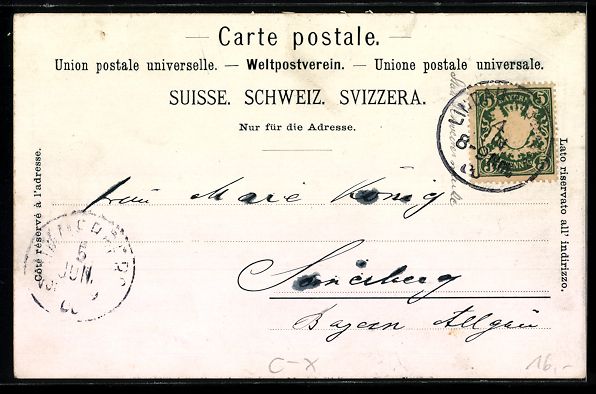 — Carte postale. —
Union postale universelle. — Weltpostverein. — Unione postale universale.
SUISSE. SCHWEIZ. SVIZZERA.
Nur für die Adresse.
Côté réservé à l'adresse.
Lato riservato all' indirizzo.
5 BAYERN 5
Marie König
Bayern Allgäu
5
JUN.
C-X
16,-